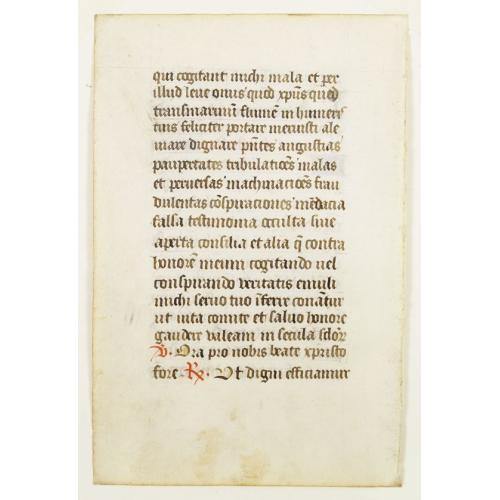 qui cogitant michi mala et per
illud leve onus quod xpūs quod
transmarinū flumē in humeris
tuis feliciter portare meruisti ale
viare dignare pn̄tes angustias
paupertates tribulacōes malas
et perversas machinacōes frau
dulentas cōspiraciones mēdacia
falsa testimonia occulta sive
aperta consilia et alia q̄ contra
honorē meum cogitando vel
conspirando veritatis emuli
michi servo tuo īferre conātur
ut vita comite et salvo honore
gaudere valeam in secula sclorꝝ
℣. Ora pro nobis beate xpristo
fore ℟. Ut digni efficiamur